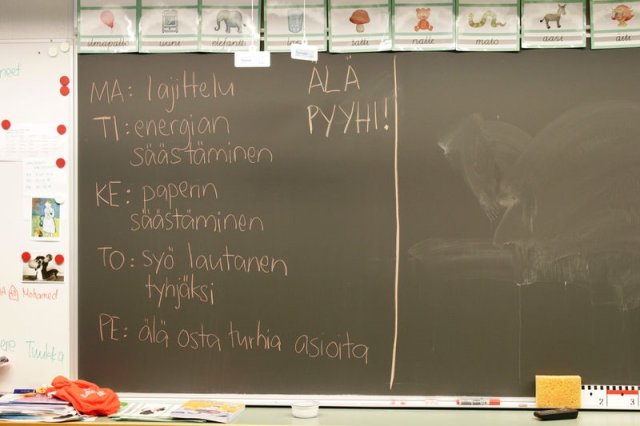 ilmapallo
uuni
elefantti
nalle
mato
aasi
MA: lajittelu
TI: energian
säästäminen
KE: paperin
säästäminen
TO: syö lautanen
tyhjäksi
PE: älä osta turhia asioita
ÄLÄ
PYYHI!
Mohamed
Tuukka
2
3